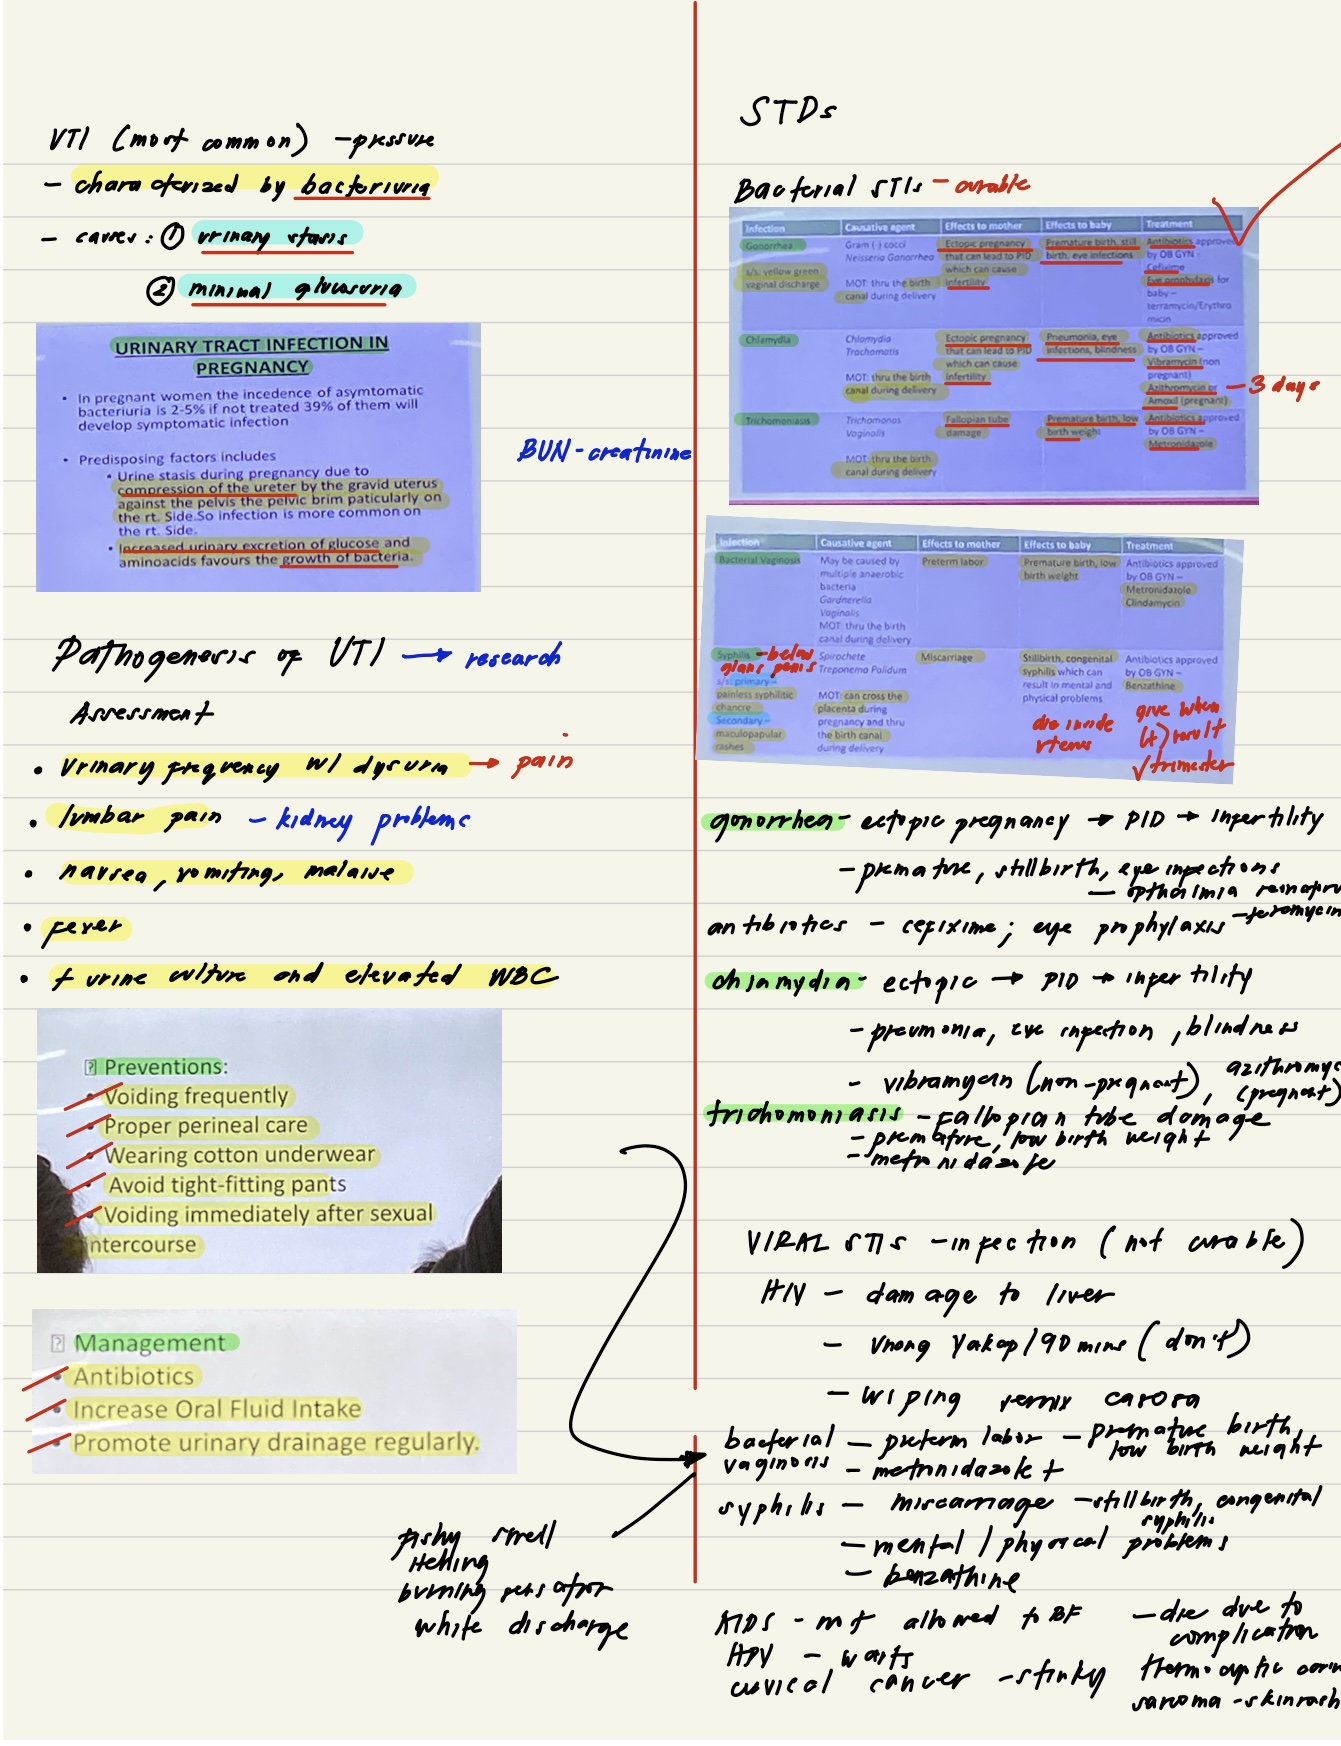 UTI (most common) - pressure
- characterized by bacteriuria
- causes: ① urinary stasis
② minimal glucosuria
URINARY TRACT INFECTION IN
PREGNANCY
• In pregnant women the incedence of asymtomatic
bacteriuria is 2-5% if not treated 39% of them will
develop symptomatic infection
• Predisposing factors includes
• Urine stasis during pregnancy due to
compression of the ureter by the gravid uterus
against the pelvis the pelvic brim paticularly on
the rt. Side.So infection is more common on
the rt. Side.
• Increased urinary excretion of glucose and
aminoacids favours the growth of bacteria.
BUN - creatinine
Pathogenesis of UTI → research
Assessment
• Urinary frequency w/ dysuria → pain
• lumbar pain - kidney problems
• nausea, vomiting, malaise
• fever
• + urine culture and elevated WBC
Preventions:
• Voiding frequently
• Proper perineal care
• Wearing cotton underwear
• Avoid tight-fitting pants
• Voiding immediately after sexual
intercourse
Management
• Antibiotics
• Increase Oral Fluid Intake
• Promote urinary drainage regularly.
fishy smell
itching
burning sensation
white discharge
STDs
Bacterial STIs - curable
Infection Causative agent Effects to mother Effects to baby Treatment
Gonorrhea
s/s: yellow green
vaginal discharge
Gram (-) cocci
Neisseria Gonorrhea
MOT: thru the birth
canal during delivery
Ectopic pregnancy
that can lead to PID
which can cause
infertility
Premature birth, still
birth, eye infections
Antibiotics approved
by OB GYN -
Cefixime
Eye prophylaxis for
baby -
terramycin/Erythro
micin
Chlamydia
Chlamydia
Trachomatis
MOT: thru the birth
canal during delivery
Ectopic pregnancy
that can lead to PID
which can cause
infertility
Pneumonia, eye
infections, blindness
Antibiotics approved
by OB GYN -
Vibramycin (non
pregnant)
Azithromycin or
Amoxil (pregnant)
- 3 days
Trichomoniasis
Trichomonas
Vaginalis
MOT: thru the birth
canal during delivery
Fallopian tube
damage
Premature birth, low
birth weight
Antibiotics approved
by OB GYN -
Metronidazole
Infection Causative agent Effects to mother Effects to baby Treatment
Bacterial Vaginosis
May be caused by
multiple anaerobic
bacteria
Gardnerella
Vaginalis
MOT: thru the birth
canal during delivery
Preterm labor
Premature birth, low
birth weight
Antibiotics approved
by OB GYN -
Metronidazole
Clindamycin
Syphilis - below
glans penis
s/s: primary -
painless syphilitic
chancre
Secondary -
maculopapular
rashes
Spirochete
Treponema Palidum
MOT: can cross the
placenta during
pregnancy and thru
the birth canal
during delivery
Miscarriage
Stillbirth, congenital
syphilis which can
result in mental and
physical problems
die inside
uterus
Antibiotics approved
by OB GYN -
Benzathine
give when
(+) result
√ trimester
gonorrhea - ectopic pregnancy → PID → infertility
- premature, stillbirth, eye infections
- opthalmia
antibiotics - cefixime; eye prophylaxis
chlamydia - ectopic → PID → infertility
- pneumonia, eye infection, blindness
- vibramycin (non-pregnant), azithromyc
(pregnant)
trichomoniasis - fallopian tube damage
- premature, low birth weight
- metronidazole
VIRAL STIs - infection (not curable)
HIV - damage to liver
- Unang Yakap / 90 mins (don't)
- wiping vernix caseosa
bacterial vaginosis - preterm labor - premature birth,
low birth weight
- metronidazole +
syphilis - miscarriage - stillbirth, congenital
syphilis
- mental / physical problems
- benzathine
AIDS - not allowed to BF - die due to
complication
HPV - warts
cervical cancer - stinky
sarcoma - skin rash